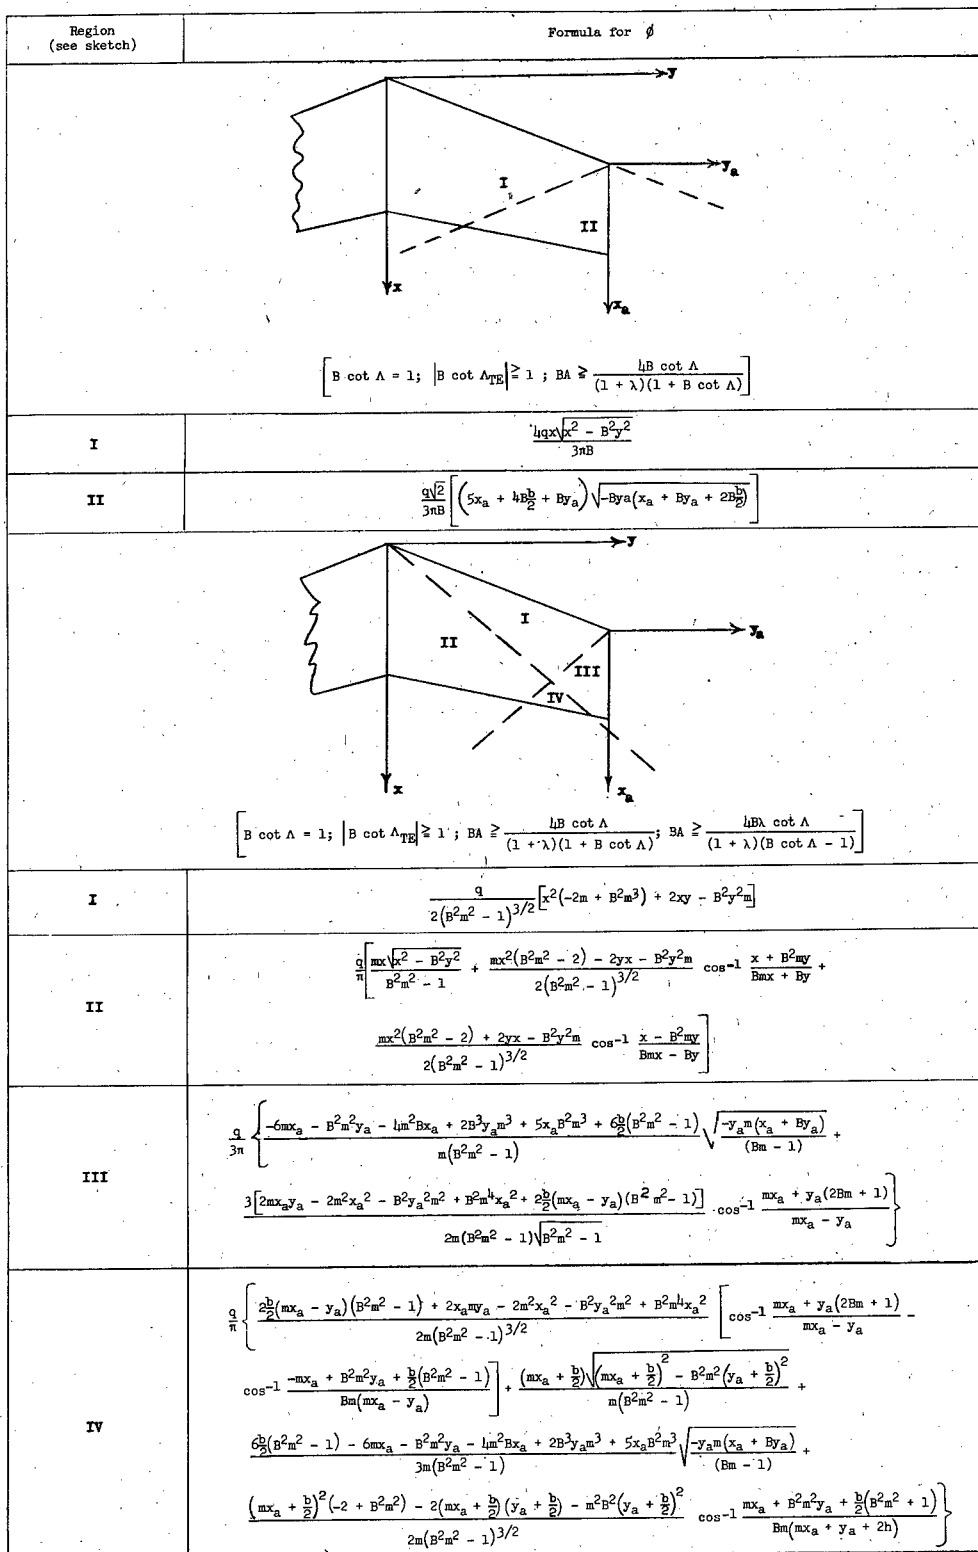 Region
(see sketch)
Formula for ϕ
y
y_a
I
II
x
x_a
[B cot Λ = 1; |B cot Λ_TE| ≧ 1 ; BA ≧ 4B cot Λ / (1 + λ)(1 + B cot Λ)]
I
4qx√(x² - B²y²) / 3πB
II
q√2 / 3πB [(5x_a + 4B b/2 + By_a) √(-Bya(x_a + By_a + 2B b/2))]
y
y_a
I
II
III
IV
x
x_a
[B cot Λ = 1; |B cot Λ_TE| ≧ 1 ; BA ≧ 4B cot Λ / (1 + λ)(1 + B cot Λ); BA ≧ 4Bλ cot Λ / (1 + λ)(B cot Λ - 1)]
I
q / 2(B²m² - 1)^3/2 [x²(-2m + B²m³) + 2xy - B²y²m]
II
q/π [mx√(x² - B²y²) / B²m² - 1 + mx²(B²m² - 2) - 2yx - B²y²m / 2(B²m² - 1)^3/2 cos⁻¹ x + B²my / Bmx + By +
mx²(B²m² - 2) + 2yx - B²y²m / 2(B²m² - 1)^3/2 cos⁻¹ x - B²my / Bmx - By]
III
q/3π {-6mx_a - B²m²y_a - 4m²Bx_a + 2B³y_am³ + 5x_aB²m³ + 6 b/2 (B²m² - 1) / m(B²m² - 1) √(-y_am(x_a + By_a) / (Bm - 1)) +
3[2mx_ay_a - 2m²x_a² - B²y_a²m² + B²m⁴x_a² + 2 b/2 (mx_a - y_a)(B² m² - 1)] / 2m(B²m² - 1)√(B²m² - 1) cos⁻¹ mx_a + y_a(2Bm + 1) / mx_a - y_a}
IV
q/π {2 b/2 (mx_a - y_a)(B²m² - 1) + 2x_amy_a - 2m²x_a² - B²y_a²m² + B²m⁴x_a² / 2m(B²m² - 1)^3/2 [cos⁻¹ mx_a + y_a(2Bm + 1) / mx_a - y_a -
cos⁻¹ -mx_a + B²m²y_a + b/2 (B²m² - 1) / Bm(mx_a - y_a)] + (mx_a + b/2)√((mx_a + b/2)² - B²m²(y_a + b/2)²) / m(B²m² - 1) +
6 b/2 (B²m² - 1) - 6mx_a - B²m²y_a - 4m²Bx_a + 2B³y_am³ + 5x_aB²m³ / 3m(B²m² - 1) √(-y_am(x_a + By_a) / (Bm - 1)) +
(mx_a + b/2)²(-2 + B²m²) - 2(mx_a + b/2)(y_a + b/2) - m²B²(y_a + b/2)² / 2m(B²m² - 1)^3/2 cos⁻¹ mx_a + B²m²y_a + b/2 (B²m² + 1) / Bm(mx_a + y_a + 2h)}